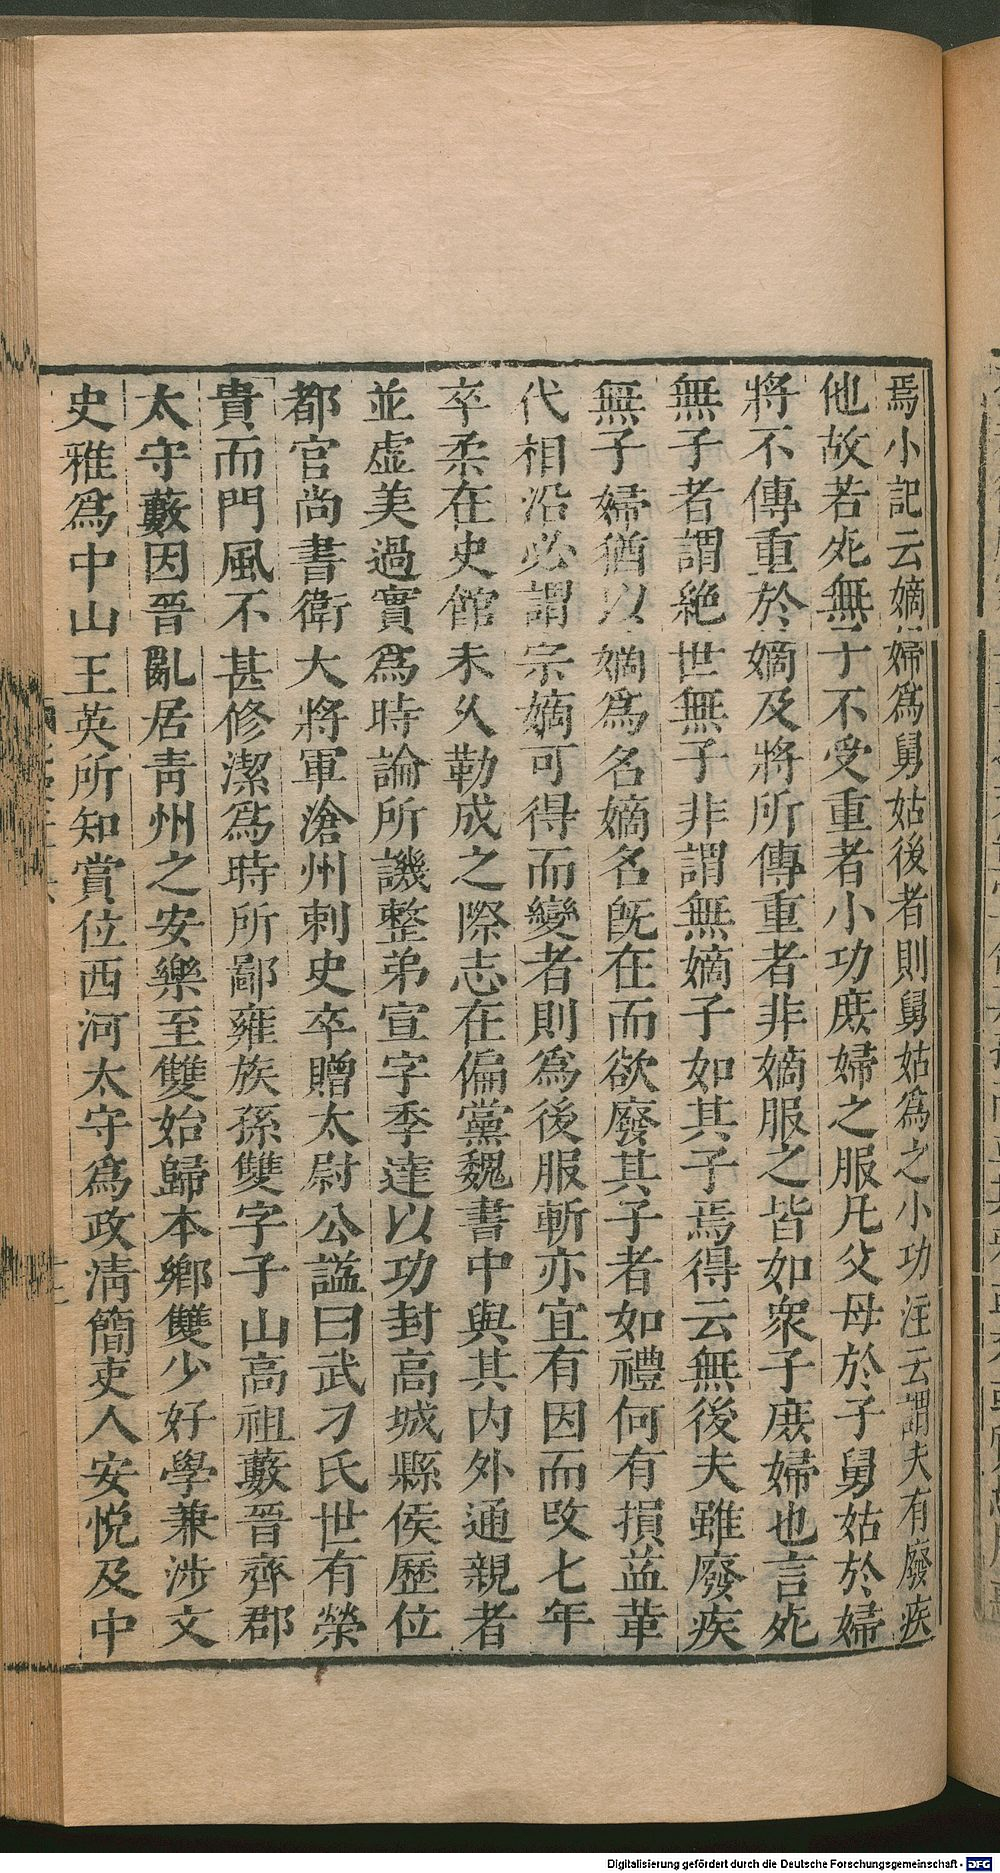 焉小記云嫡婦爲舅姑後者則舅姑爲之小功注云謂夫有廢疾
他故若死無子不受重者小功庶婦之服凡父母於子舅姑於婦
將不傳重於嫡及將所傳重者非嫡服之皆如衆子庶婦也言死
無子者謂絶世無子非謂無嫡子如其子焉得云無後夫雖廢疾
無子婦猶以嫡爲名嫡名旣在而欲廢其子者如禮何有損益革
代相沿必謂宗嫡可得而變者則爲後服斬亦宜有因而改七年
卒柔在史館未久勒成之際志在偏黨魏書中與其内外通親者
並虚美過實爲時論所譏整弟宣字季達以功封高城縣侯歷位
都官尚書衛大將軍滄州刺史卒贈太尉公諡曰武刁氏世有榮
貴而門風不甚修潔爲時所鄙雍族孫雙字子山高祖藪晉齊郡
太守藪因晉亂居靑州之安樂至雙始歸本鄉雙少好學兼涉文
史雅爲中山王英所知賞位西河太守爲政淸簡吏人安悅及中
Digitalisierung gefördert durch die Deutsche Forschungsgemeinschaft - DFG